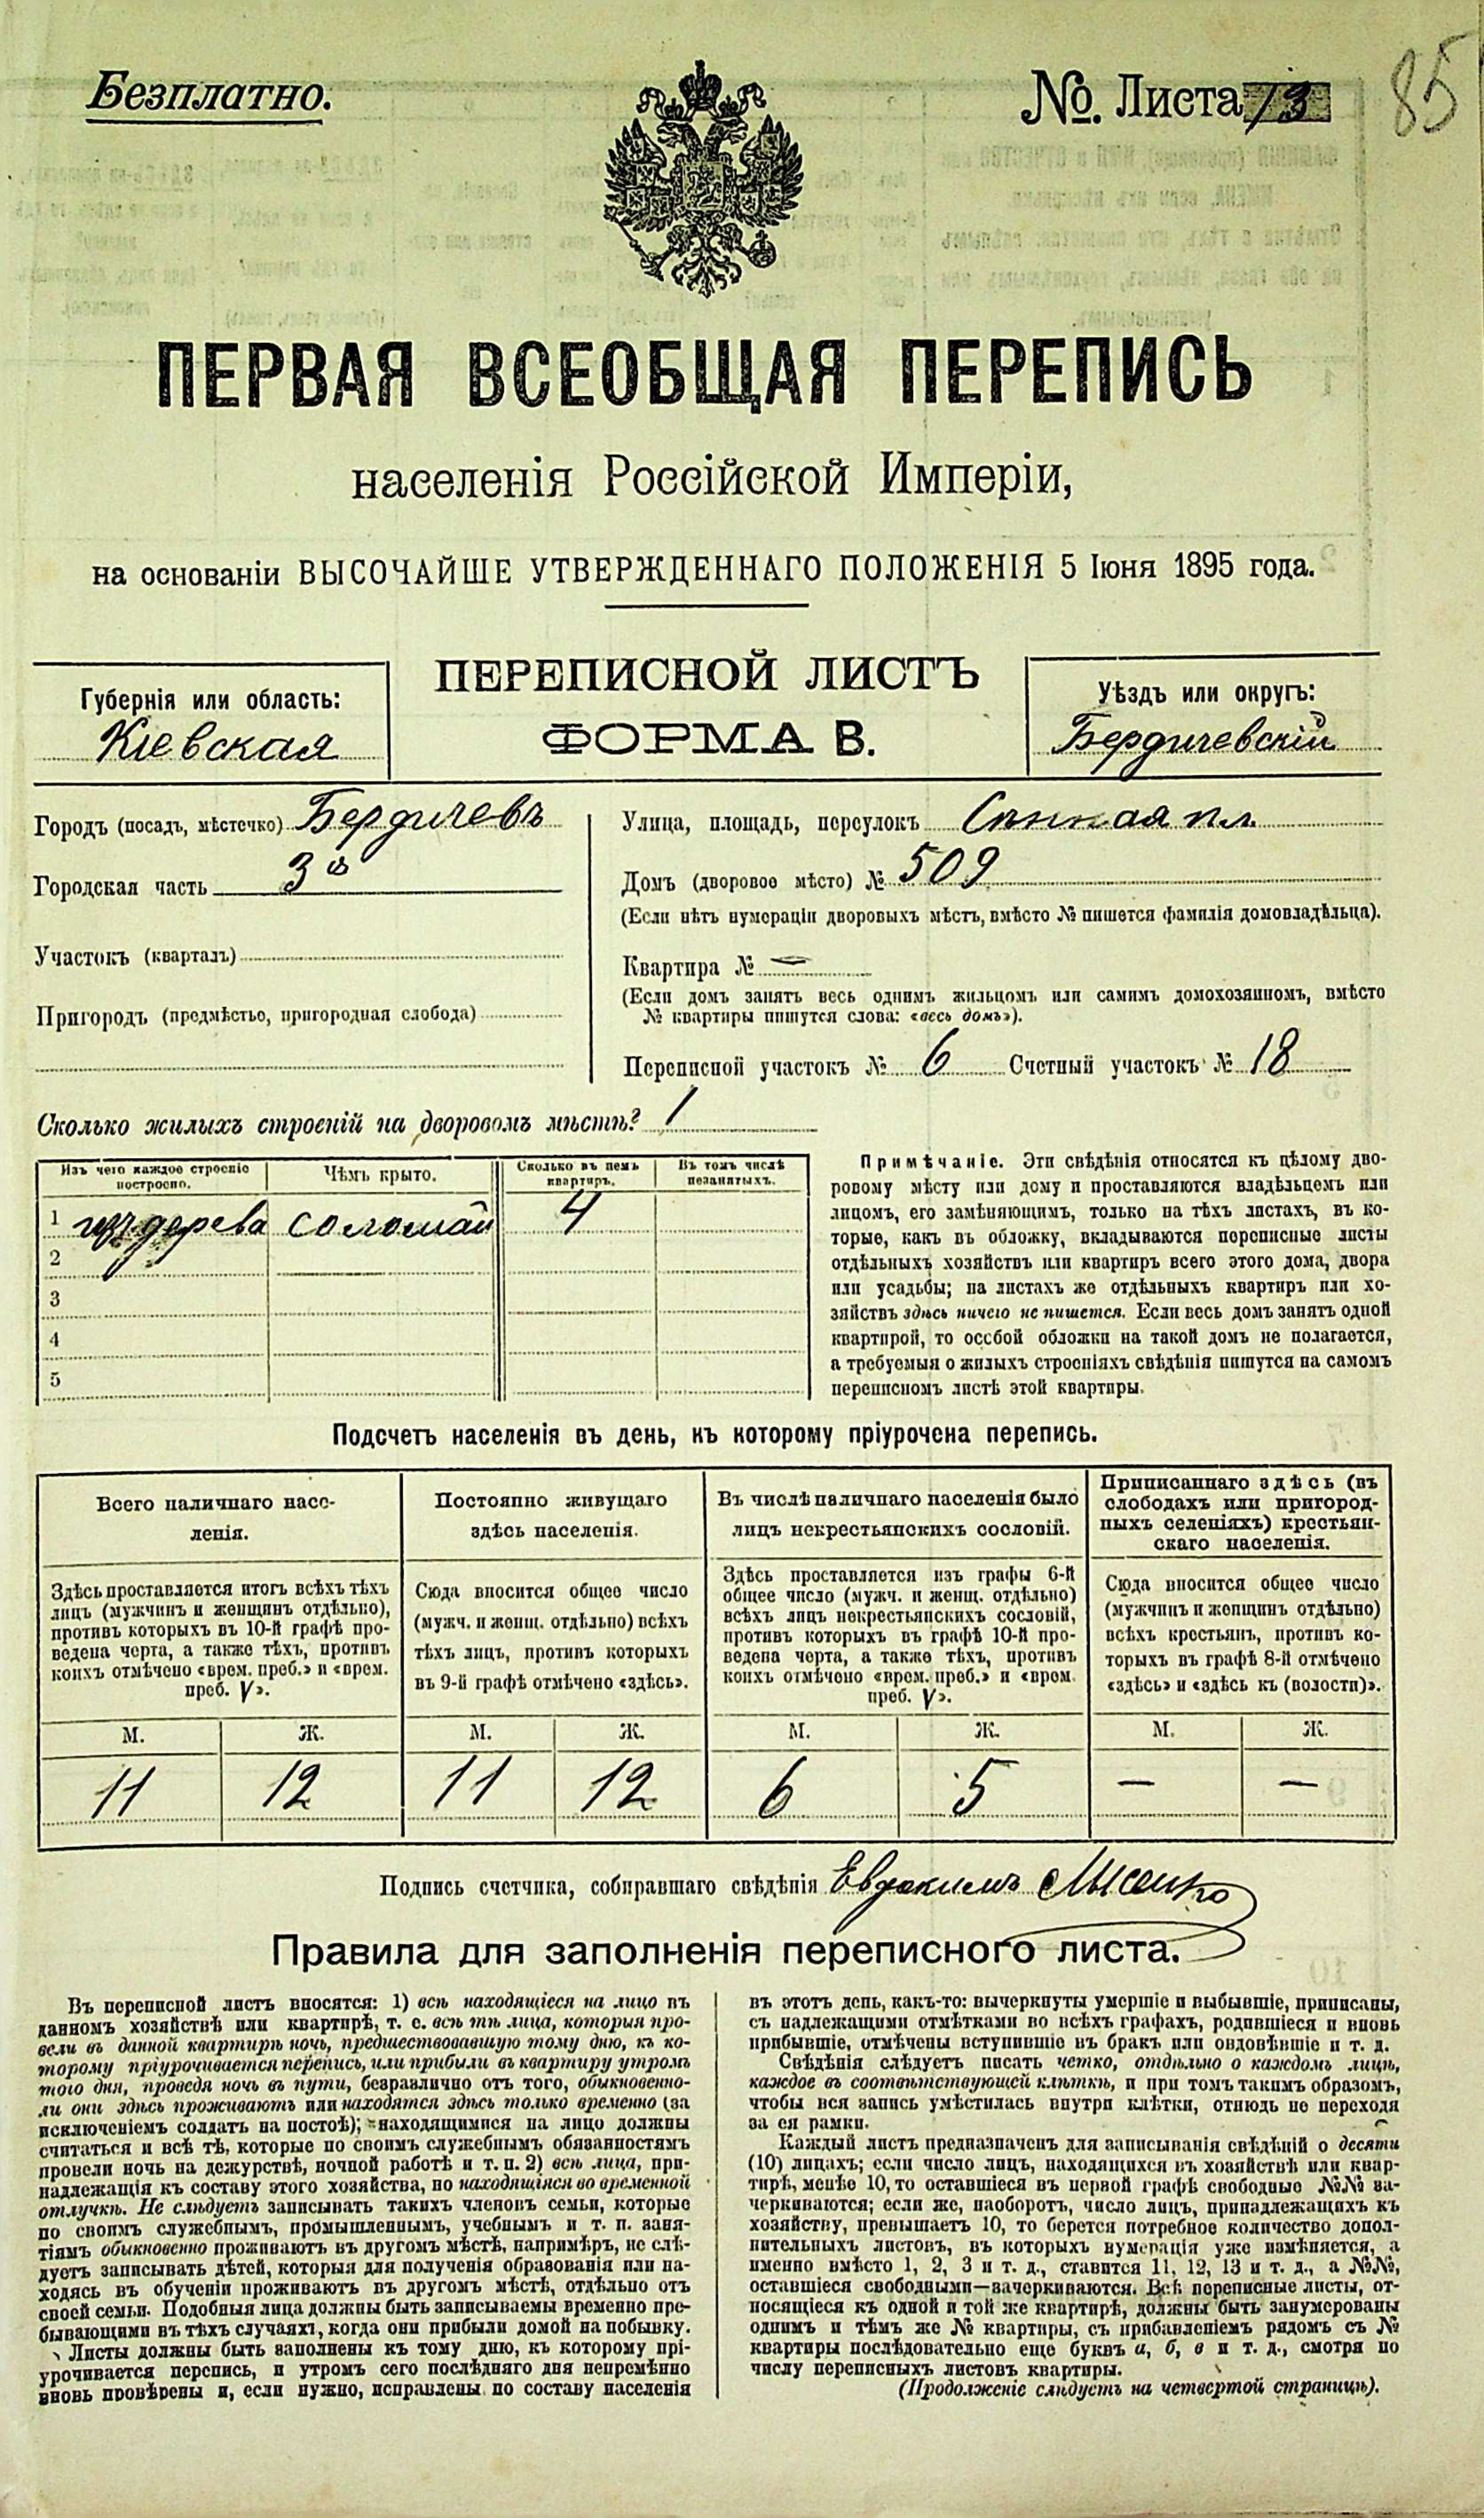 Безплатно.
№. Листа 13
85
ПЕРВАЯ ВСЕОБЩАЯ ПЕРЕПИСЬ
населенія Россійской Имперіи,
на основаніи ВЫСОЧАЙШЕ УТВЕРЖДЕННАГО ПОЛОЖЕНІЯ 5 Іюня 1895 года.
ПЕРЕПИСНОЙ ЛИСТЪ
ФОРМА В.
Губернія или область:
Кіевская
Уѣздъ или округъ:
Бердичевскій
Городъ (посадъ, мѣстечко) Бердичевъ
Городская часть 3я
Участокъ (кварталъ)
Пригородъ (предмѣстье, пригородная слобода)
Улица, площадь, переулокъ Сѣнная пл.
Домъ (дворовое мѣсто) № 509
(Если нѣтъ нумераціи дворовыхъ мѣстъ, вмѣсто № пишется фамилія домовладѣльца).
Квартира № —
(Если домъ занятъ весь однимъ жильцомъ или самимъ домохозяиномъ, вмѣсто
№ квартиры пишутся слова: «весь домъ»).
Переписной участокъ № 6 Счетный участокъ № 18
Сколько жилыхъ строеній на дворовомъ мѣстѣ? 1
Изъ чего каждое строеніе построено.
Чѣмъ крыто.
Сколько въ немъ квартиръ.
Въ томъ числѣ незанятыхъ.
1 изъ дерева соломай 4
2
3
4
5
Примѣчаніе. Эти свѣдѣнія относятся къ цѣлому дво-
ровому мѣсту или дому и проставляются владѣльцемъ или
лицомъ, его замѣняющимъ, только на тѣхъ листахъ, въ ко-
торые, какъ въ обложку, вкладываются переписные листы
отдѣльныхъ хозяйствъ или квартиръ всего этого дома, двора
или усадьбы; на листахъ же отдѣльныхъ квартиръ или хо-
зяйствъ здѣсь ничего не пишется. Если весь домъ занятъ одной
квартирой, то особой обложки на такой домъ не полагается,
а требуемыя о жилыхъ строеніяхъ свѣдѣнія пишутся на самомъ
переписномъ листѣ этой квартиры.
Подсчетъ населенія въ день, къ которому пріурочена перепись.
Всего наличнаго насе-
ленія.
Здѣсь проставляется итогъ всѣхъ тѣхъ
лицъ (мужчинъ и женщинъ отдѣльно),
противъ которыхъ въ 10-й графѣ про-
ведена черта, а также тѣхъ, противъ
коихъ отмѣчено «врем. преб.» и «врем.
преб. V».
М. Ж.
11 12
Постоянно живущаго
здѣсь населенія.
Сюда вносится общее число
(мужч. и женщ. отдѣльно) всѣхъ
тѣхъ лицъ, противъ которыхъ
въ 9-й графѣ отмѣчено «здѣсь».
М. Ж.
11 12
Въ числѣ наличнаго населенія было
лицъ некрестьянскихъ сословій.
Здѣсь проставляется изъ графы 6-й
общее число (мужч. и женщ. отдѣльно)
всѣхъ лицъ некрестьянскихъ сословій,
противъ которыхъ въ графѣ 10-й про-
ведена черта, а также тѣхъ, противъ
коихъ отмѣчено «врем. преб.» и «врем.
преб. V».
М. Ж.
6 5
Приписаннаго здѣсь (въ
слободахъ или пригород-
ныхъ селеніяхъ) крестьян-
скаго населенія.
Сюда вносится общее число
(мужчинъ и женщинъ отдѣльно)
всѣхъ крестьянъ, противъ ко-
торыхъ въ графѣ 8-й отмѣчено
«здѣсь» и «здѣсь къ (волости)».
М. Ж.
— —
Подпись счетчика, собиравшаго свѣдѣнія Евдокимъ Лысенко
Правила для заполненія переписного листа.
Въ переписной листъ вносятся: 1) всѣ находящіеся на лицо въ
данномъ хозяйствѣ или квартирѣ, т. е. всѣ тѣ лица, которыя про-
вели въ данной квартирѣ ночь, предшествовавшую тому дню, къ ко-
торому пріурочивается перепись, или прибыли въ квартиру утромъ
того дня, проведя ночь въ пути, безразлично отъ того, обыкновенно-
ли они здѣсь проживаютъ или находятся здѣсь только временно (за
исключеніемъ солдатъ на постоѣ); находящимися на лицо должны
считаться и всѣ тѣ, которые по своимъ служебнымъ обязанностямъ
провели ночь на дежурствѣ, ночной работѣ и т. п. 2) всѣ лица, при-
надлежащія къ составу этого хозяйства, но находящіяся во временной
отлучкѣ. Не слѣдуетъ записывать такихъ членовъ семьи, которые
по своимъ служебнымъ, промышленнымъ, учебнымъ и т. п. заня-
тіямъ обыкновенно проживаютъ въ другомъ мѣстѣ, напримѣръ, не слѣ-
дуетъ записывать дѣтей, которыя для полученія образованія или на-
ходясь въ обученіи проживаютъ въ другомъ мѣстѣ, отдѣльно отъ
своей семьи. Подобныя лица должны быть записываемы временно пре-
бывающими въ тѣхъ случаяхъ, когда они прибыли домой на побывку.
Листы должны быть заполнены къ тому дню, къ которому прі-
урочивается перепись, и утромъ сего послѣдняго дня непремѣнно
вновь провѣрены и, если нужно, исправлены по составу населенія
въ этотъ день, какъ-то: вычеркнуты умершіе и выбывшіе, приписаны,
съ надлежащими отмѣтками во всѣхъ графахъ, родившіеся и вновь
прибывшіе, отмѣчены вступившіе въ бракъ или овдовѣвшіе и т. д.
Свѣдѣнія слѣдуетъ писать четко, отдѣльно о каждомъ лицѣ,
каждое въ соотвѣтствующей клѣткѣ, и при томъ такимъ образомъ,
чтобы вся запись умѣстилась внутри клѣтки, отнюдь не переходя
за ея рамки.
Каждый листъ предназначенъ для записыванія свѣдѣній о десяти
(10) лицахъ; если число лицъ, находящихся въ хозяйствѣ или квар-
тирѣ, менѣе 10, то оставшіеся въ первой графѣ свободные №№ за-
черкиваются; если же, наоборотъ, число лицъ, принадлежащихъ къ
хозяйству, превышаетъ 10, то берется потребное количество допол-
нительныхъ листовъ, въ которыхъ нумерація уже измѣняется, а
именно вмѣсто 1, 2, 3 и т. д., ставится 11, 12, 13 и т. д., а №№,
оставшіеся свободными—зачеркиваются. Всѣ переписные листы, от-
носящіеся къ одной и той же квартирѣ, должны быть занумерованы
однимъ и тѣмъ же № квартиры, съ прибавленіемъ рядомъ съ №
квартиры послѣдовательно еще буквъ а, б, в и т. д., смотря по
числу переписныхъ листовъ квартиры.
(Продолженіе слѣдуетъ на четвертой страницѣ).